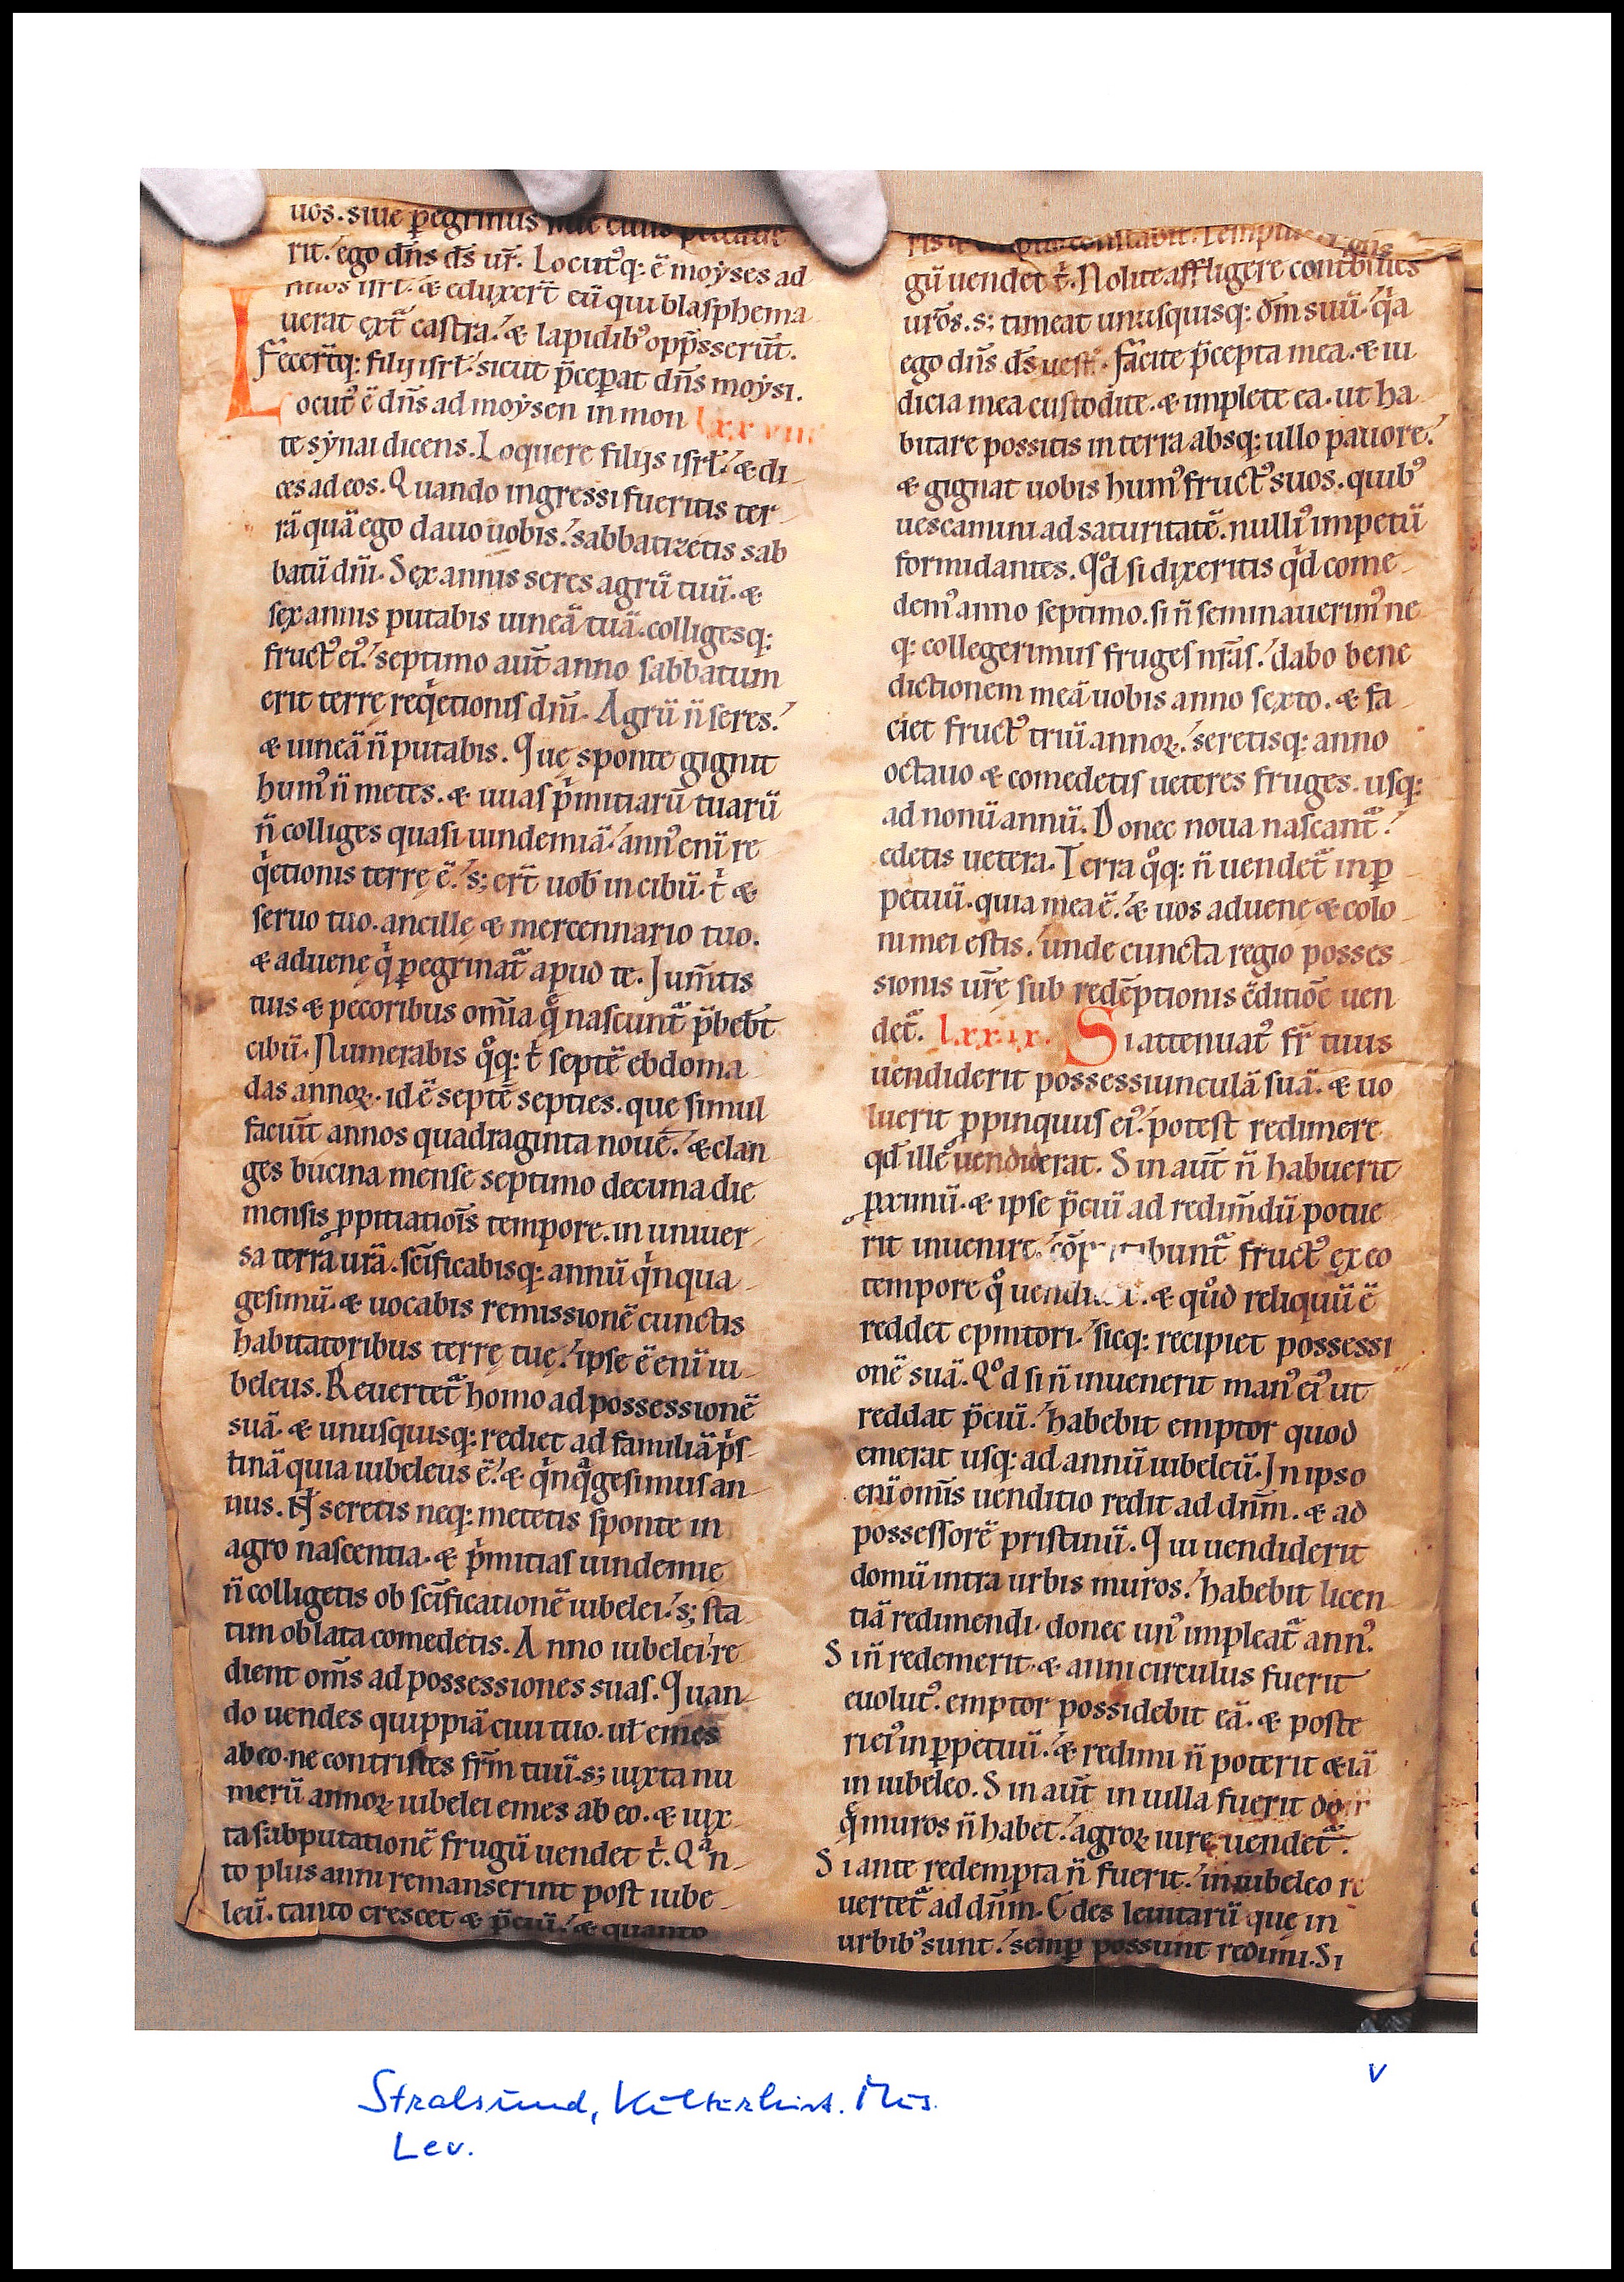 uos. siue ꝑegrinus siue ciuis peccaue
rit. ego dn̄s ds̄ ur̄. Locutꝰq: ē moẏses ad
filios isrł. & eduxert̄ eū qui blasphema
uerat ext̄ castra. & lapidibꝰ opp̄sserūt.
Fecert̄q: filij isrł. sicut p̄ceperat dn̄s moẏsi.
Locutꝰ ē dn̄s ad moẏsen in mon lxxviii
te sẏnai dicens. Loquere filijs isrł. & di
ces ad eos. Quando ingressi fueritis ter
rā quā ego dauo uobis. sabbatizetis sab
batū dn̄i. Sex annis seres agrū tuū. &
sex annis putabis uineā tuā. colligesq:
fructꝰ eiꝰ. septimo aut̄ anno sabbatum
erit terrę reqͥetionis dn̄i. Agrū n̄ seres.
& uineā n̄ putabis. Que sponte gignit
humꝰ n̄ metes. & uuas pͥmitiarū tuarū
n̄ colliges quasi uindemiā. annꝰ enī re
qͥetionis terrę ē. s; ert̄ uob̄ in cibū. tͥ &
seruo tuo. ancille & mercennario tuo.
& aduene qͥ ꝑegrinat᷑ apud te. Jum̄tis
tuis & pecoribus om̄ia qͣ nascunt᷑ p̄beb̄t
cibū. Numerabis qͦq: tͥ septē ebdoma
das annoꝝ. id ē septē septies. que simul
faciūt annos quadraginta nouē. & clan
ges bucina mense septimo decima die
mensis ꝓpitiatiōis tempore. in uniuer
sa terra urā. sc̄ificabisq: annū qͥnqua
gesimū. & uocabis remissionē cunctis
habitatoribus terrę tuę. ipse ē enī iu
beleus. Reuertet᷑ homo ad possessionē
suā. & unusquisq: rediet ad familiā pͥs
tinā quia iubeleus ē. & qͥnqͣgesimus an
nus. N̄ seretis neq: metetis sponte in
agro nascentia. & pͥmitias uindemie
n̄ colligetis ob sc̄ificationē iubelei. s; sta
tim oblata comedetis. Anno iubelei re
dient om̄s ad possessiones suas. Quan
do uendes quippiā ciui tuo. ut emes
ab eo. ne contristes fr̄m tuū. s; iuxta nu
merū annoꝝ iubelei emes ab eo. & iux
ta subputationē frugū uendet tͥ. Qͣn
to plus anni remanserint post iube
leū. tanto crescet & p̄ciū. & quanto
gū uendet tͥ. Nolite affligere contͥbules
urōs. s; timeat unusquisq: dm̄ suū. qͥa
ego dn̄s ds̄ uest. Facite p̄cepta mea. & iu
dicia mea custodite. & implete ea. ut ha
bitare possitis in terra absq: ullo pauore.
& gignat uobis humꝰ fructꝰ suos. quibꝰ
uescamini ad saturitatē. nulliꝰ impetū
formidantes. Qͦd si dixeritis qͥd come
demꝰ anno septimo. si n̄ seminauerimꝰ ne
q: collegerimus fruges nrās. dabo bene
dictionem meā uobis anno sexto. & fa
ciet fructꝰ triū annoꝝ. seretisq: anno
octauo & comedetis ueteres fruges. usq:
ad nonū annū. Donec noua nascant᷑.
edetis uetera. Terra qͦq: n̄ uendet᷑ in ꝑ
petuū. quia mea ē. & uos aduene & colo
ni mei estis. unde cuncta regio posses
sionis urē sub redēptionis 9ditiōe uen
det᷑. lxxix. Si attenuatꝰ fr̄ tuus
uendiderit possessiunculā suā. & uo
luerit ꝓpinquus eiꝰ. potest redimere
qd̄ ille uendiderat. Sin aut̄ n̄ habuerit
ꝓximū. & ipse p̄ciū ad redim̄dū potue
rit inuenire. bunt᷑ fructꝰ ex eo
tempore qͦ. & qͦd reliquū ē
reddet epmtori. sicq: recipiet possessi
onē suā. Qͦd si n̄ inuenerit manꝰ eiꝰ ut
reddat p̄ciū. habebit emptor quod
emerat usq: ad annū iubeleū. In ipso
enī om̄is uenditio redit ad dn̄m. & ad
possessorē pristinū. Qui uendiderit
domū intra urbis muros. habebit licen
tiā redimendi. donec unꝰ impleat᷑ annꝰ.
Si n̄ redemerit. & anni circulus fuerit
euolutꝰ. emptor possidebit eā. & poste
ri eiꝰ in ꝑpetuū. & redimi n̄ poterit & iā
in iubeleo. Sin aut̄ in uilla fuerit
qͤ muros n̄ habet. agroꝝ iure uendet᷑.
Si ante redempta n̄ fuerit. in iubeleo re
uertet᷑ ad dn̄m. Edes leuitarū quę in
urbibꝰ sunt. semꝑ possunt redimi. Si
v
Stralsund, Kulturhist. Mus.
Lev.